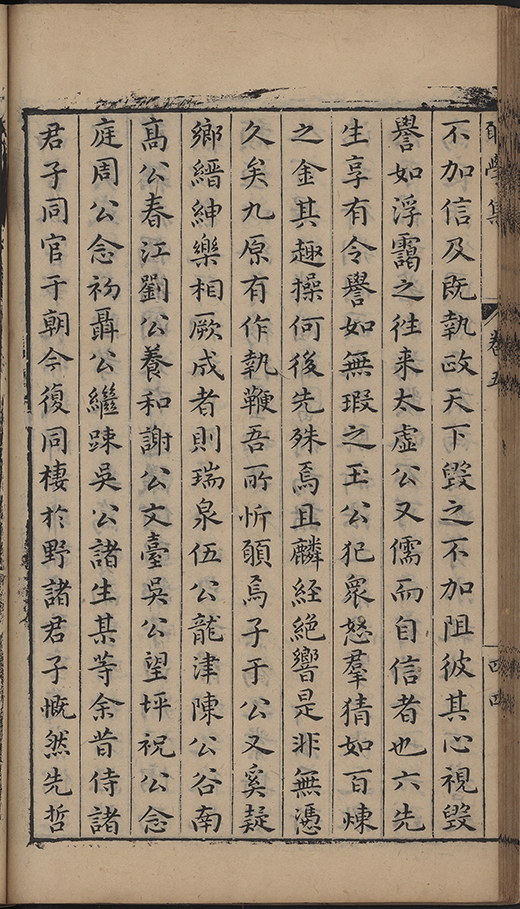 卷五
四四
不加信及既執政天下毀之不加阻彼其心視毀
譽如浮靄之徃来太虛公又儒而自信者也六先
生享有令譽如無瑕之玉公犯衆怒羣猜如百煉
之金其趣操何後先殊焉且麟經絶響是非無憑
久矣九原有作執鞭吾所忻願焉子于公又奚疑
鄉縉紳樂相厥成者則瑞泉伍公龍津陳公谷南
高公春江劉公養和謝公文臺吳公望坪祝公念
庭周公念初聶公繼踈吳公諸生某等余昔侍諸
君子同官于朝今復同棲於野諸君子慨然先哲